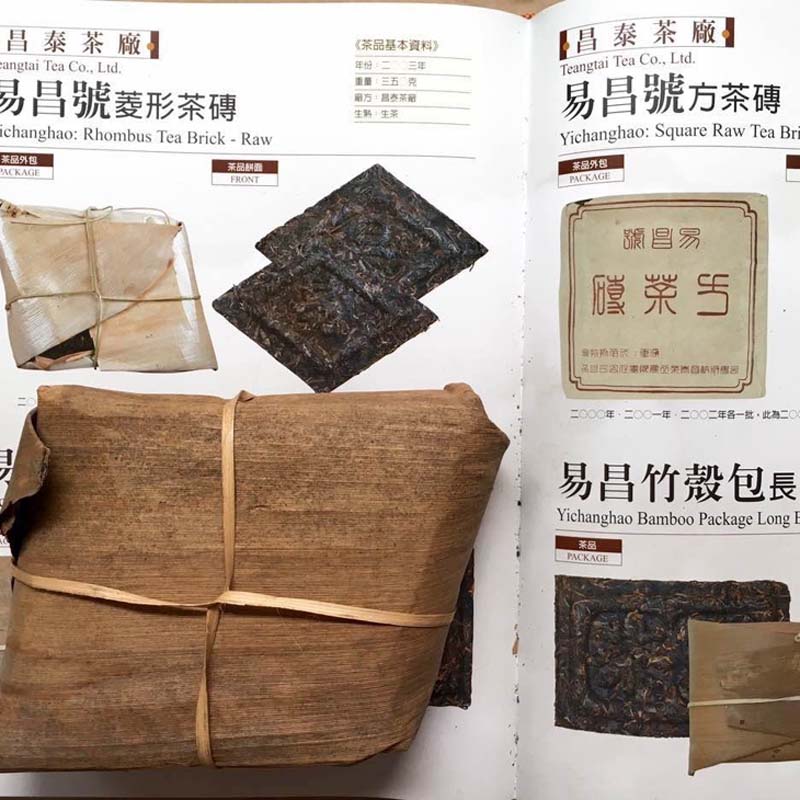 昌泰茶廠
eangtai Tea Co., Ltd.
易昌號菱形茶磚
ichanghao: Rhombus Tea Brick - Raw
茶品外包
PACKAGE
茶品餅面
FRONT
《茶品基本資料》
年份：二〇〇三年
重量：三五〇克
廠方：昌泰茶廠
生熟：生茶
昌泰茶廠
Teangtai Tea Co., Ltd.
易昌號方茶磚
Yichanghao: Square Raw Tea Bri
茶品外包
PACKAGE
號昌易
磚茶方
二〇〇〇年，二〇〇一年，二〇〇二年各一批，此為二〇
易昌竹殼包長
Yichanghao Bamboo Package Long B
茶品
PACKAGE